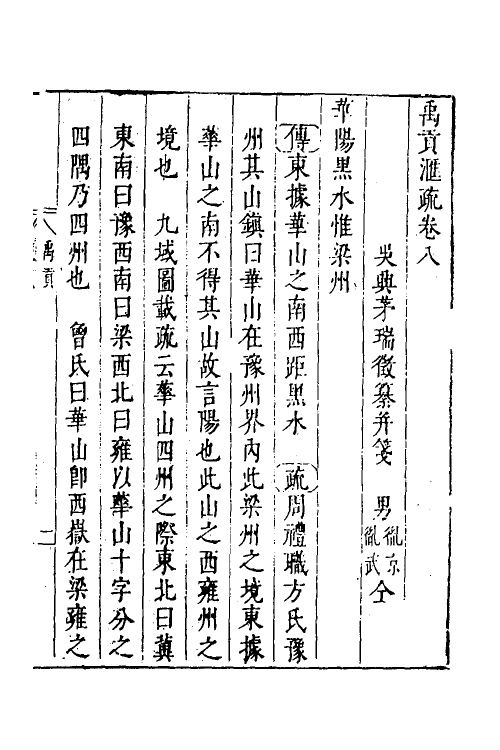 禹貢滙疏卷八
吳興茅瑞徵纂并箋　男胤京胤武仝
華陽黑水惟梁州
傳東據華山之南西距黑水　疏周禮職方氏豫
州其山鎮曰華山在豫州界內此梁州之境東據
華山之南不得其山故言陽也此山之西雍州之
境也　九域圖載疏云華山四州之際東北曰冀
東南曰豫西南曰梁西北曰雍以華山十字分之
四隅乃四州也　曾氏曰華山卽西嶽在梁雍之
禹貢